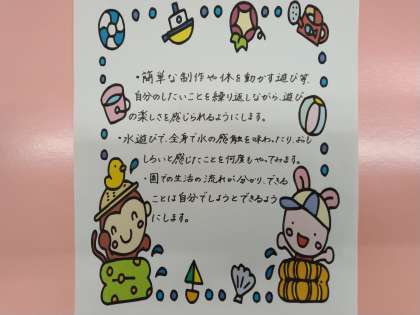 ・簡単な制作や体を動かす遊び等、
自分のしたいことを繰り返しながら、遊び
の楽しさを感じられるようにします。
・水遊びで、全身で水の感触を味わったり、おも
しろいと感じたことを何度もやってみます。
・園での生活の流れが分かり、できる
ことは自分でしようとできるよう
にします。